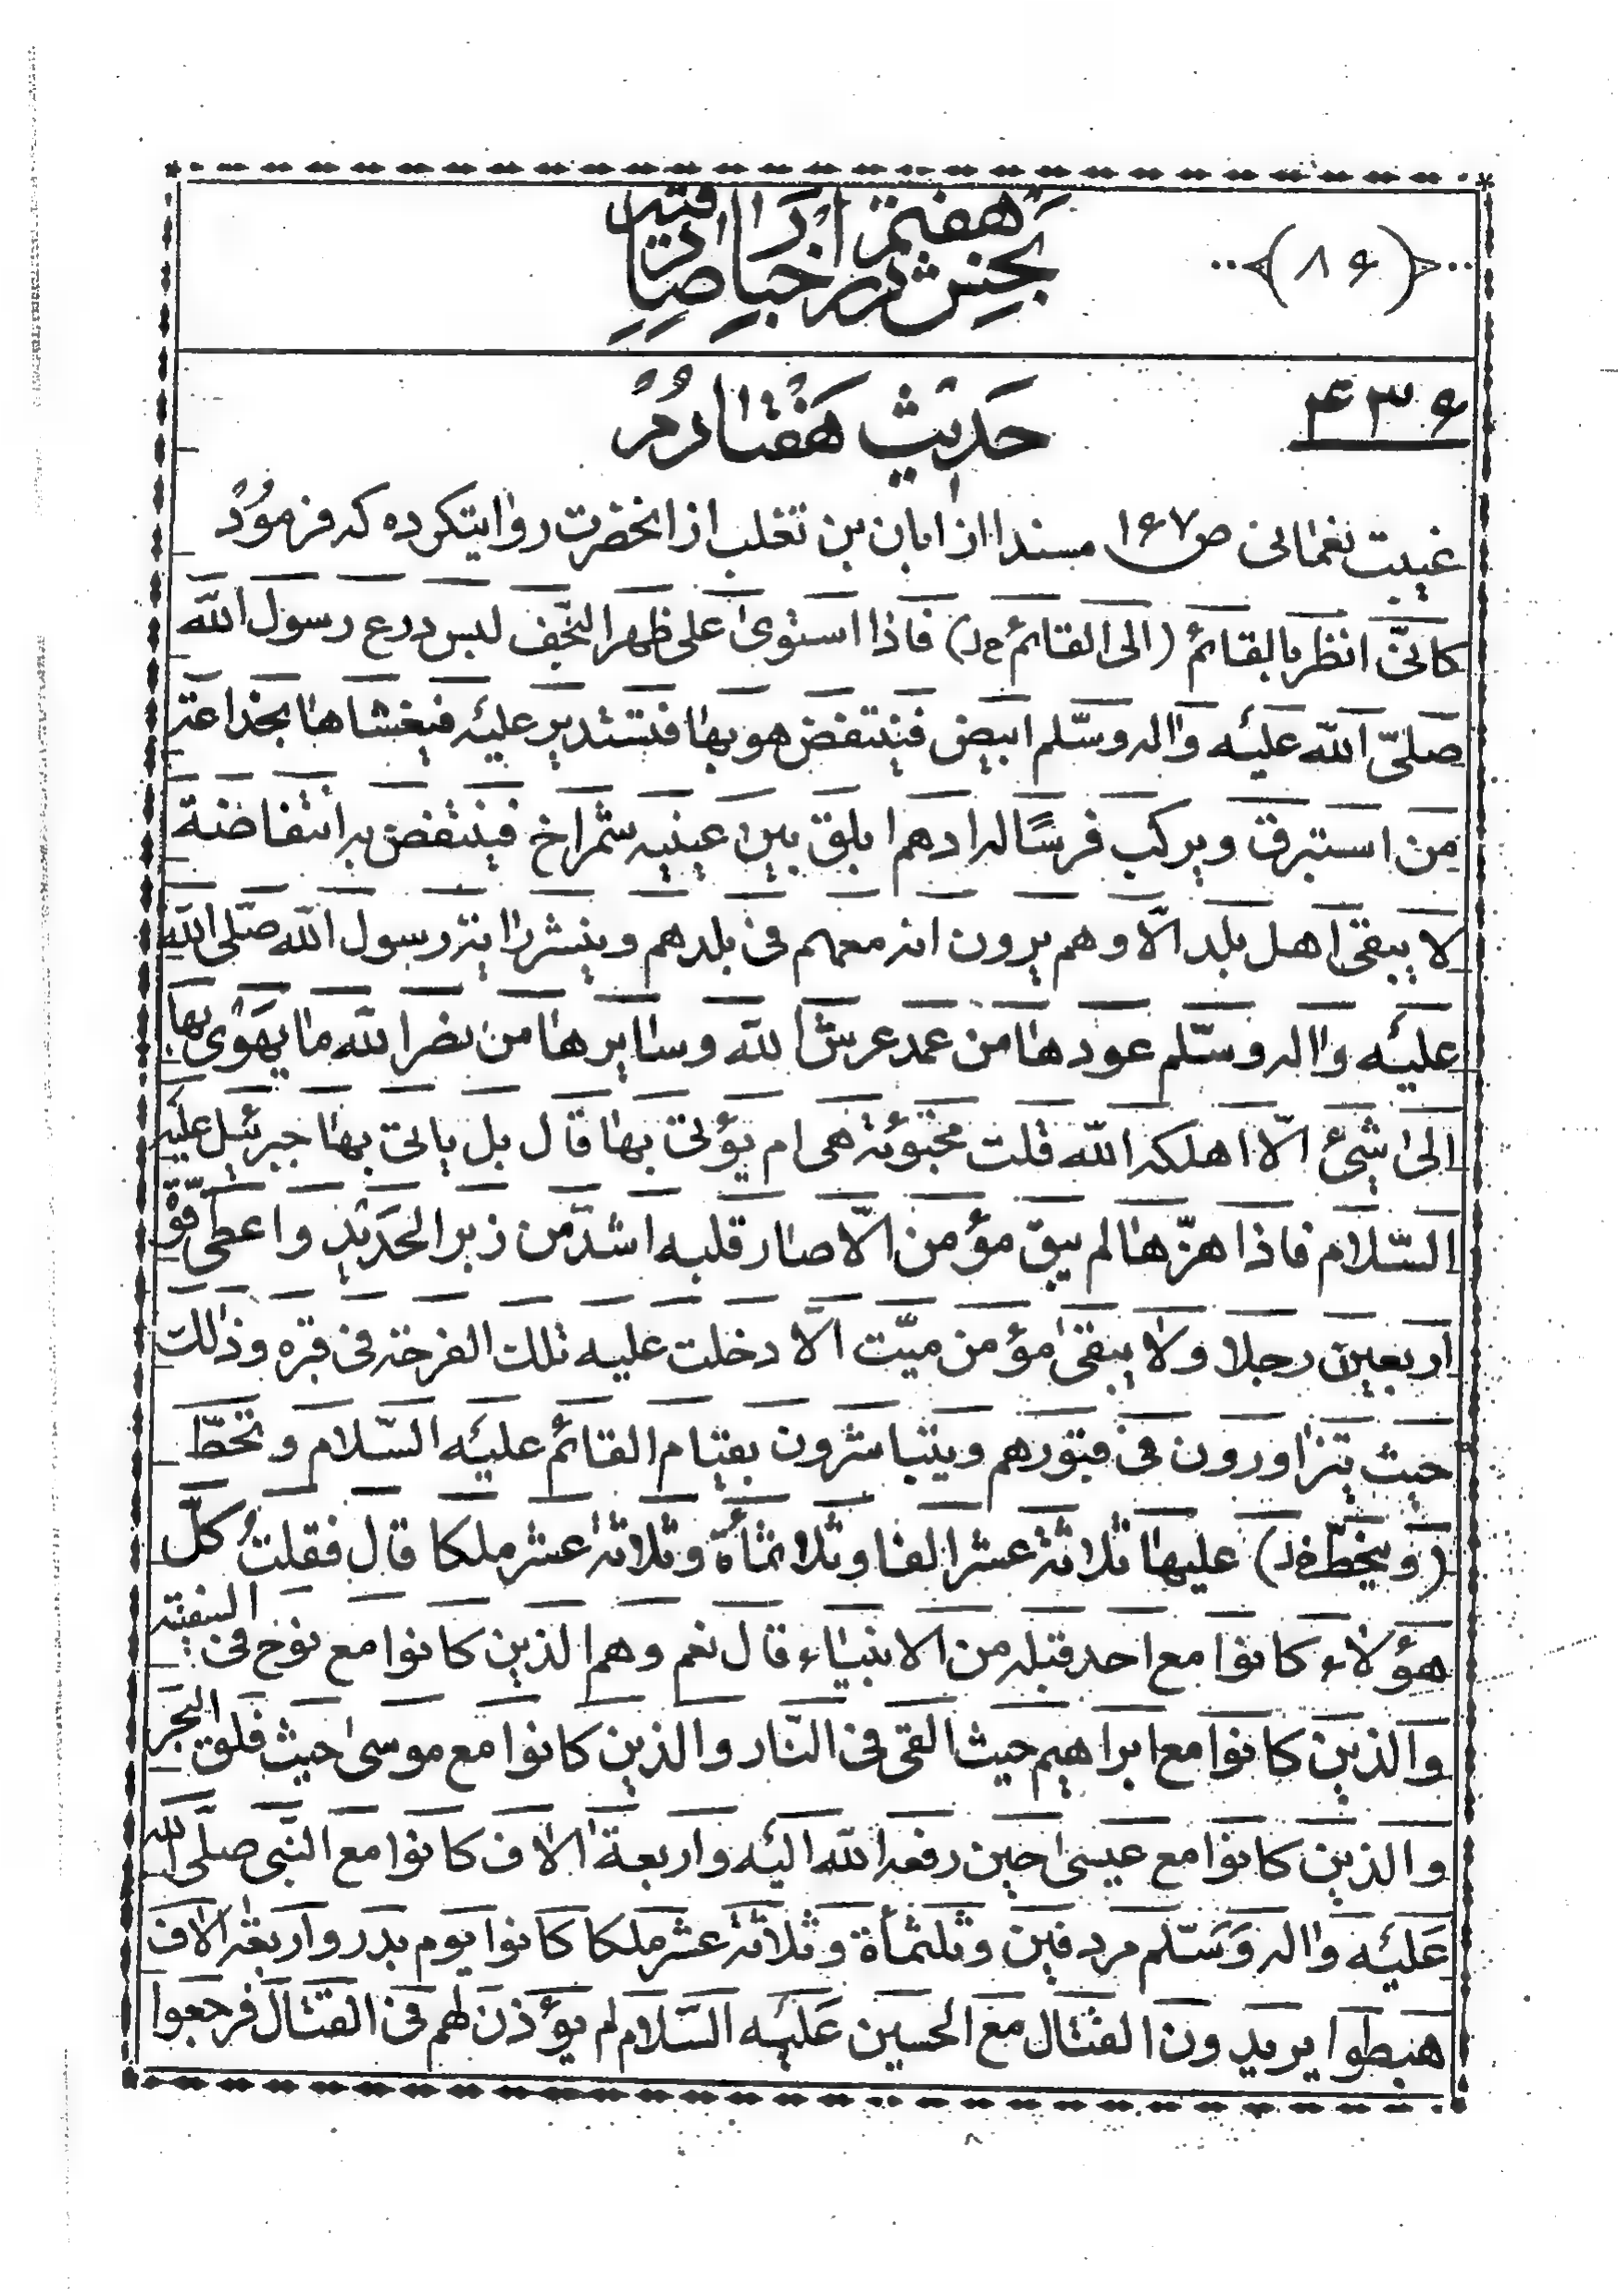 ﴿۸۶﴾
بخش هفتم در اخبار صادقیه
۴۳۶
حدیث هفتاد و دوم
غیبت نعمانی ص۱۶۷ مسندا از ابان بن تغلب از انحضرت روایتکرده که فرمود
کانّی انظر بالقائم (الی القائم خ‌د) فاذا استوی علی ظهر النّجف لبس درع رسول الله
صلّی الله علیه واله وسّلم ابیض فینتفض هو بها فتستدیر علیه فیغشاها بخذاعة
من استبرق ویرکب فرسًا له ادهم ابلق بین عینیه شمراخ فینتفض به انتفاضة
لا یبقی اهل بلد الّا وهم یرون انه معهم فی بلدهم وینشر رایة رسول الله صلّی الله
علیه واله وسّلم عودها من عمد عرش الله وسایرها من نصر الله ما یهوی بها
الی شیئ الّا اهلکه الله قلت مخبوئة هی ام یؤتی بها قال بل یاتی بها جبرئیل علیه
السّلام فاذا هزّها لم یبق مؤمن الّا صار قلبه اشدّ من زبر الحدید واعطی قوّة
اربعین رجلا ولا یبقی مؤمن میّت الّا دخلت علیه تلک الفرحة فی قبره وذلک
حیث یتزاورون فی قبورهم ویتباشرون بقیام القائم علیه السّلام وتخطّ
(ویخطّ خ‌د) علیها ثلاثة عشر الفا وثلاثمأة وثلاثة عشر ملکا قال فقلت کلّ
هؤلاء کانوا مع احد قبله من الانبیاء قال نعم وهم الذین کانوا مع نوح فی السفینة
والذین کانوا مع ابراهیم حیث القی فی النّار والذین کانوا مع موسی حیث فلق البحر
والذین کانوا مع عیسی حین رفعه الله الیه واربعة الاف کانوا مع النّبی صلّی الله
علیه واله وسّلم مردفین وثلثمأة وثلاثة عشر ملکا کانوا یوم بدر واربعة الاف
هبطوا یریدون القتال مع الحسین علیه السّلام لم یؤذن لهم فی القتال فرجعوا